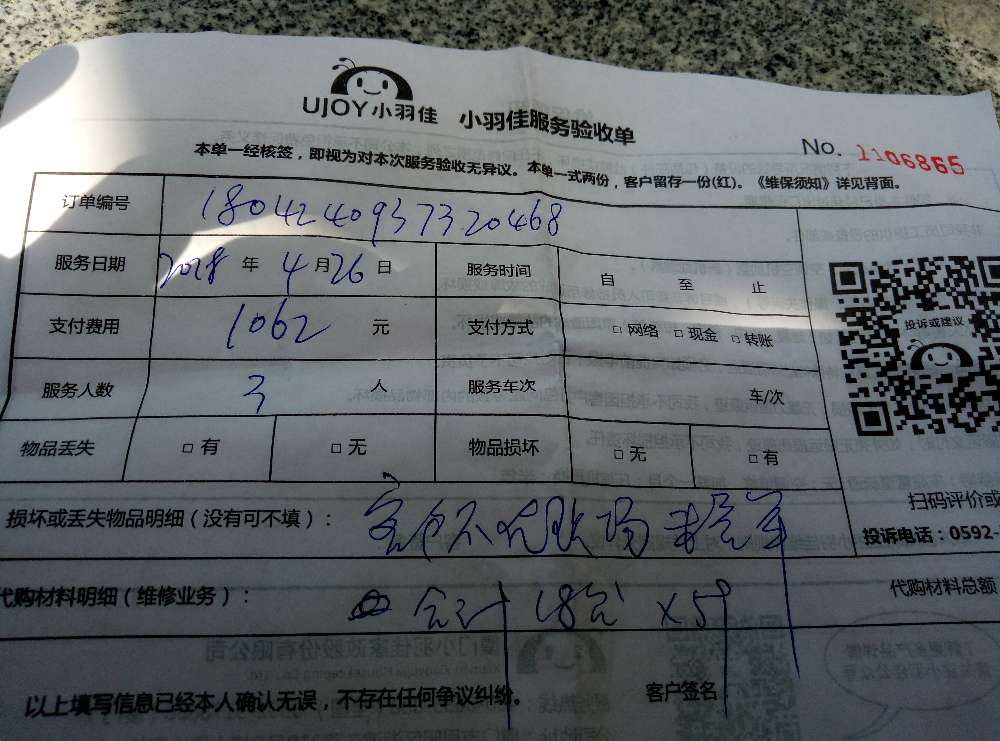 UJOY小羽佳 小羽佳服务验收单
No. 1106865
本单一经核签，即视为对本次服务验收无异议。本单一式两份，客户留存一份(红)。《维保须知》详见背面。
订单编号 1804240937320468
服务日期 2018 年 4 月 26 日 服务时间 自 至 止
支付费用 1062 元 支付方式 □ 网络 □ 现金 □ 转账
投诉或建议
服务人数 3 人 服务车次 车/次
物品丢失 □ 有 □ 无 物品损坏 □ 无 □ 有
扫码评价或
损坏或丢失物品明细（没有可不填）：
投诉电话：0592-
代购材料明细（维修业务）： 合计 18台 x 59
代购材料总额
以上填写信息已经本人确认无误，不存在任何争议纠纷。 客户签名